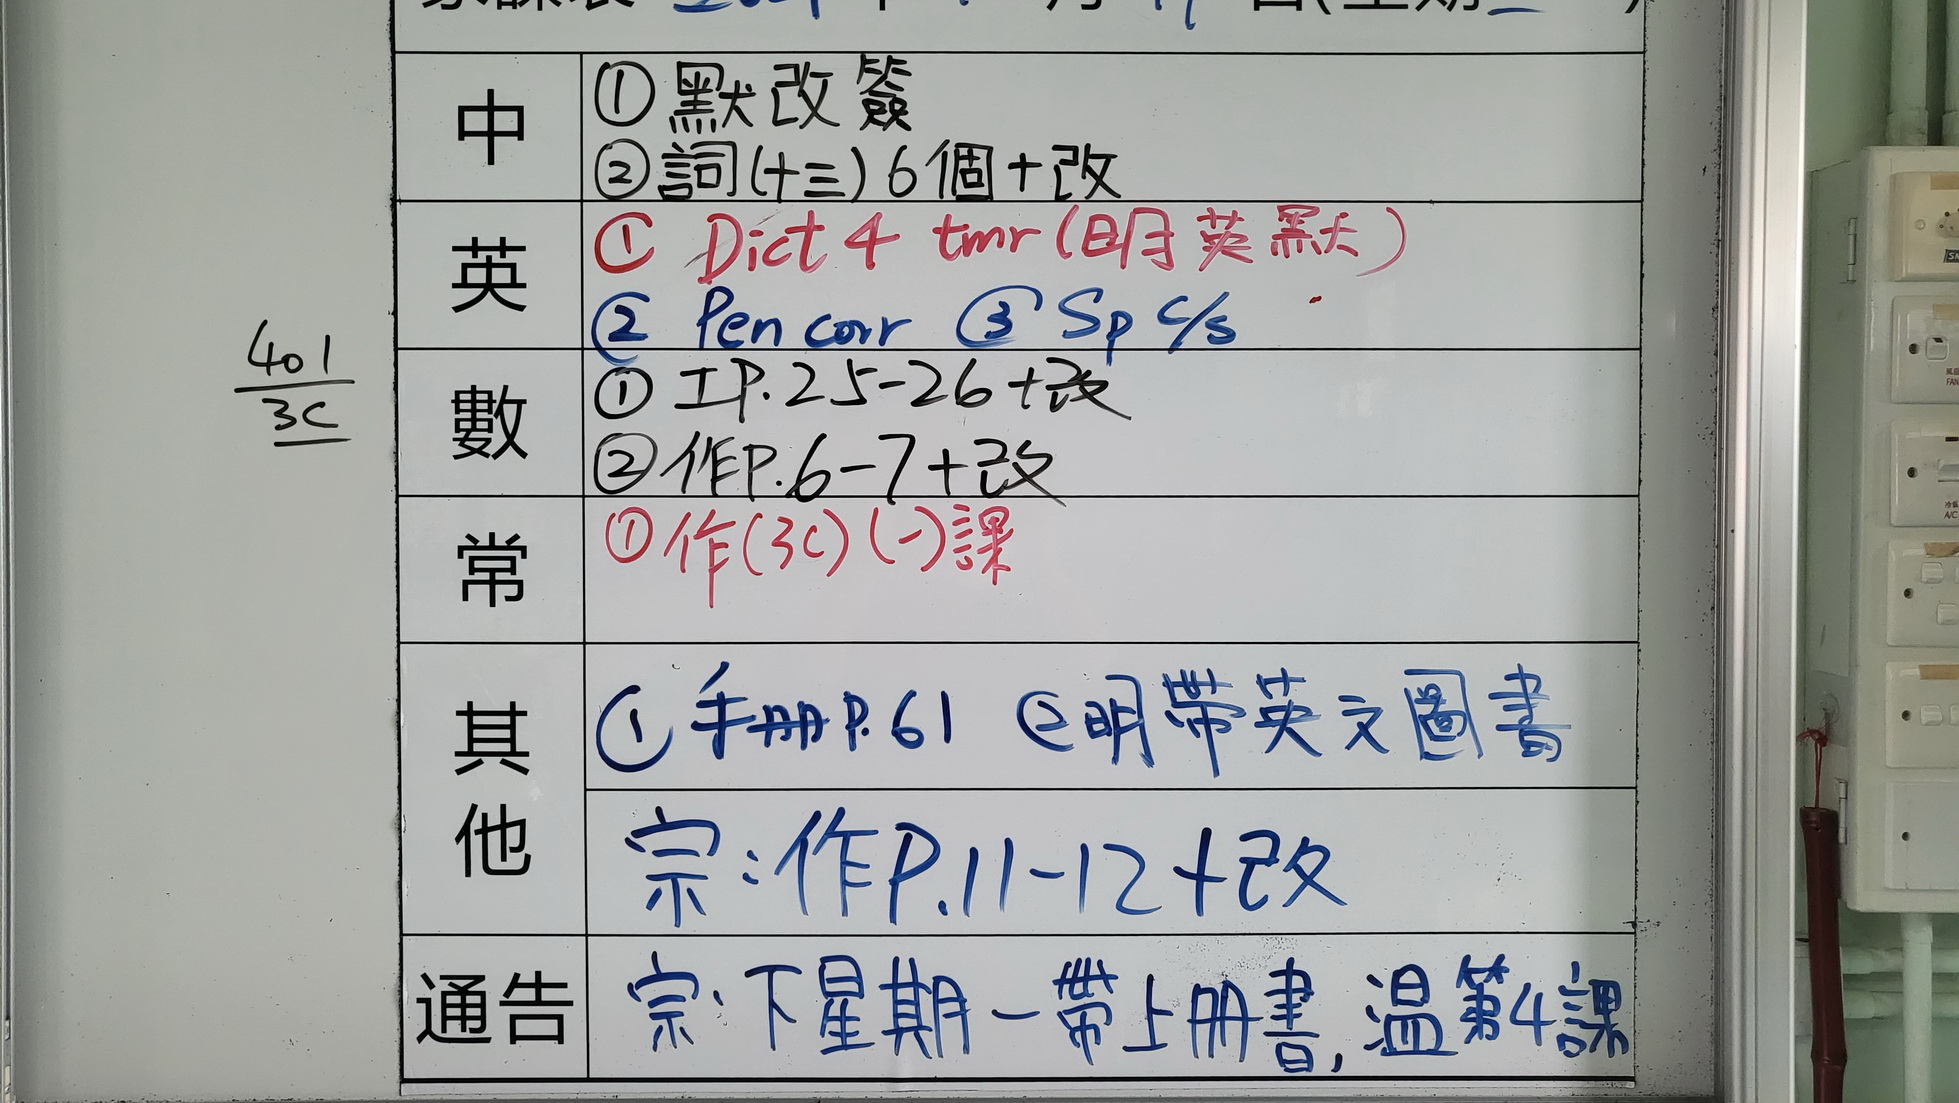 中
① 默改簽
② 詞(十三)6個+改
英
① Dict 4 tmr(明英默)
② Pen corr ③ Sp c/s
401
3C
數
① 工P.25-26+改
② 作P.6-7+改
常
① 作(3C)(一)課
其他
① 手冊P.61 ② 明帶英文圖書
宗:作P.11-12+改
通告
宗:下星期一帶上冊書,溫第4課
FAN
A/C